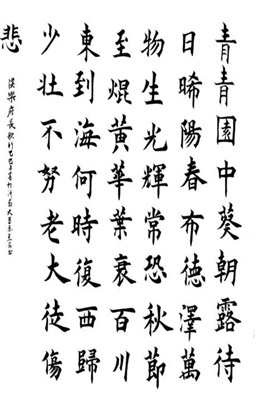 青青園中葵朝露待
日晞陽春布德澤萬
物生光輝常恐秋節
至焜黃華葉衰百川
東到海何時復西歸
少壯不努老大徒傷
悲
漢樂府長歌行